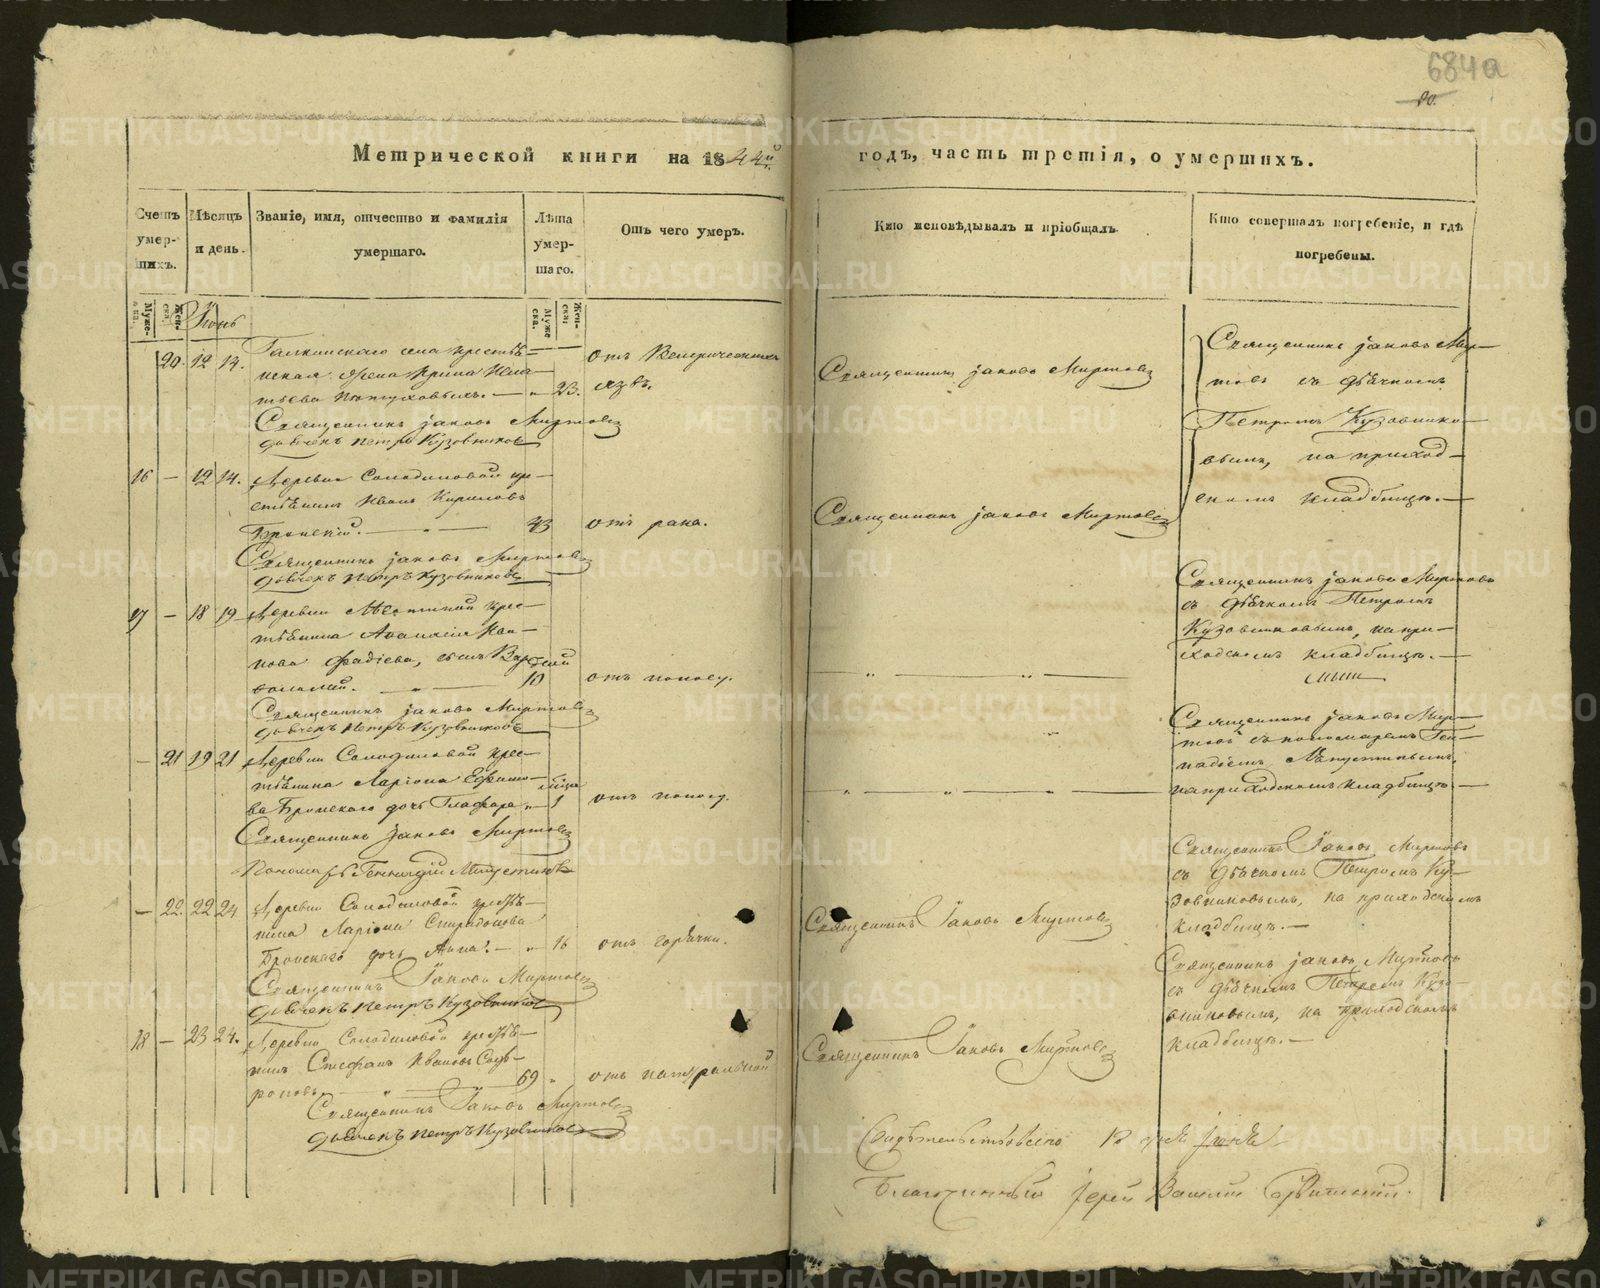 684а
80.
Метрической книги на 1844й
годъ, часть третія, о умершихъ.
Счетъ умер-шихъ.
Мѣсяцъ и день.
Званіе, имя, отчество и фамилія умершаго.
Лѣта умер-шаго.
Отъ чего умеръ.
Кто исповѣдывалъ и пріобщалъ.
Кто совершалъ погребеніе, и гдѣ погребены.
Муже-ска.
Жен-ска.
Муже ска.
Жен-ска.
Іюнь
20. 12 14. Галкинскаго села крестья-
нская жена Ирина
23.
отъ Венерическихъ
язвъ.
Священникъ Іаковъ Миртовъ
дьячекъ Петръ Кузовниковъ
Священникъ Іаковъ Миртовъ
Священникъ Іаковъ Мир-
товъ съ дьячкомъ
Петромъ Кузовнико-
вымъ, на приход-
скомъ кладбищѣ.
16 — 12 14. Деревни Солодиловой кре-
стьянинъ Иванъ Кириловъ
Бронскій. — 43 отъ рака.
Священникъ Іаковъ Миртовъ
дьячекъ Петръ Кузовниковъ
Священникъ Іаковъ Миртовъ
17 — 18 19 Деревни крес-
тьянина Аѳанасія Ива-
нова Фадѣева, сынъ
10 отъ поносу.
Священникъ Іаковъ Миртовъ
дьячекъ Петръ Кузовниковъ
Священникъ Іаковъ Миртовъ
съ дьячкомъ Петромъ
Кузовниковымъ, на при-
ходскомъ кладбищѣ.
— 21 19 21 Деревни Солодиловой крес-
тьянина Ларіона Ефимо-
ва Бронскаго дочь Глафира „ 1 отъ поносу.
Священникъ Іаковъ Миртовъ
Пономарь Геннадій
Священникъ Іаковъ Мир-
товъ съ пономаремъ Ген-
надіемъ
на приходскомъ кладбищѣ.
— 22. 22 24 Деревни Солодиловой крестья-
нина Ларіона Спиридонова
Бронскаго дочь Анна. — „ 16 отъ горячки.
Священникъ Іаковъ Миртовъ
дьячекъ Петръ Кузовниковъ
Священникъ Іаковъ Миртовъ
Священникъ Іаковъ Миртовъ
съ дьячкомъ Петромъ Ку-
зовниковымъ, на приходскомъ
кладбищѣ. —
18 — 23 24. Деревни Солодиловой крестья-
нинъ Стефанъ Ивановъ Сафъ-
роновъ. 69 „ отъ натуральной
Священникъ Іаковъ Миртовъ
дьячекъ Петръ Кузовниковъ
Священникъ Іаковъ Миртовъ
Священникъ Іаковъ Миртовъ
съ дьячкомъ Петромъ Кузо-
вниковымъ, на приходскомъ
кладбищѣ. —
Свидѣтельствовано
Благочинный Іерей Василій
METRIKI.GASO-URAL.RU